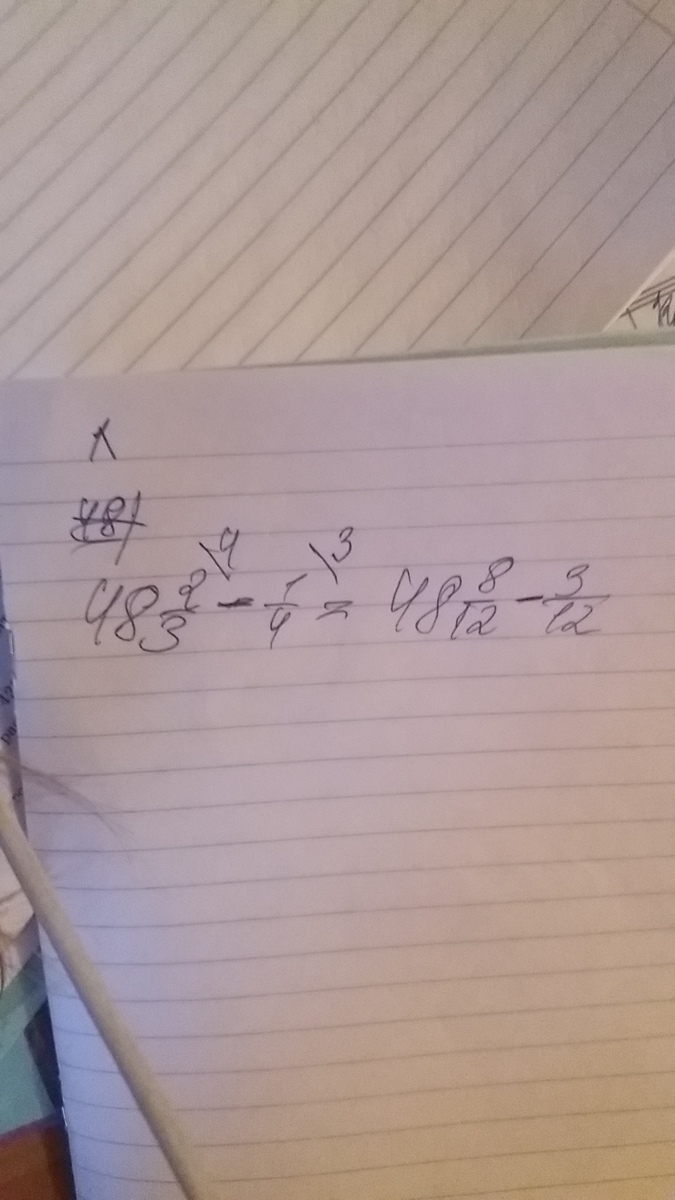 1
48
48 2/3 \4 - 1/4 \3 = 48 8/12 - 3/12